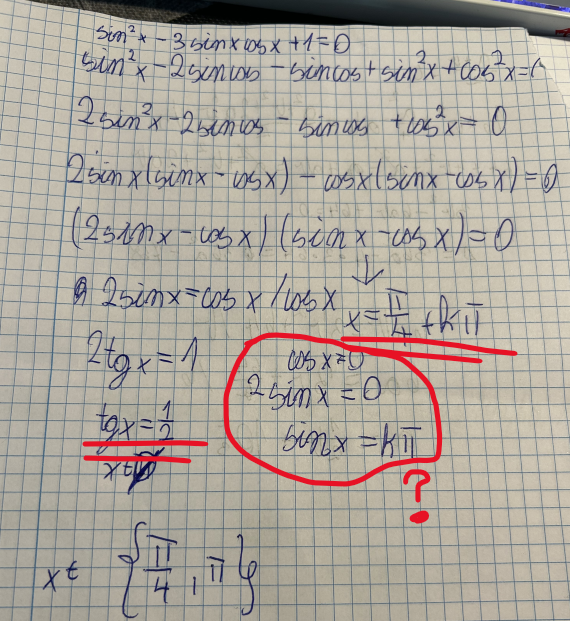 sin²x - 3sinxcosx + 1 = 0
sin²x - 2sincos - sincos + sin²x + cos²x =
2sin²x - 2sincos - sincos + cos²x = 0
2sinx(sinx - cosx) - cosx(sinx - cosx) = 0
(2sinx - cosx)(sinx - cosx) = 0
↓
2sinx = cosx /cosx
x = π/4 + kπ
2tgx = 1
tgx = 1/2
cosx = 0
2sinx = 0
sinx = kπ
?
x ∈ {π/4, π}